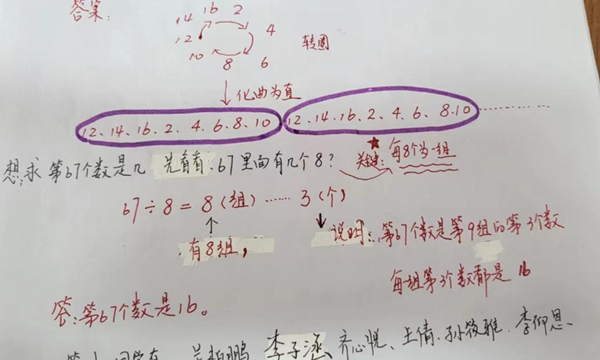 答案:
14 16 2
12 4 转圈
10 8 6
化曲为直
12、14、16、2、4、6、8、10 12、14、16、2、4、6、8、10 ………
想:求第67个数是几 先看看:67里面有几个8? 关键:每8个为一组
67÷8=8(组)……3(个)
有8组, 说明:第67个数是第9组的第3个数
每组第3个数都是16
答:第67个数是16。
李子涵、齐心悦、王倩、孙筱雅、李仰恩、